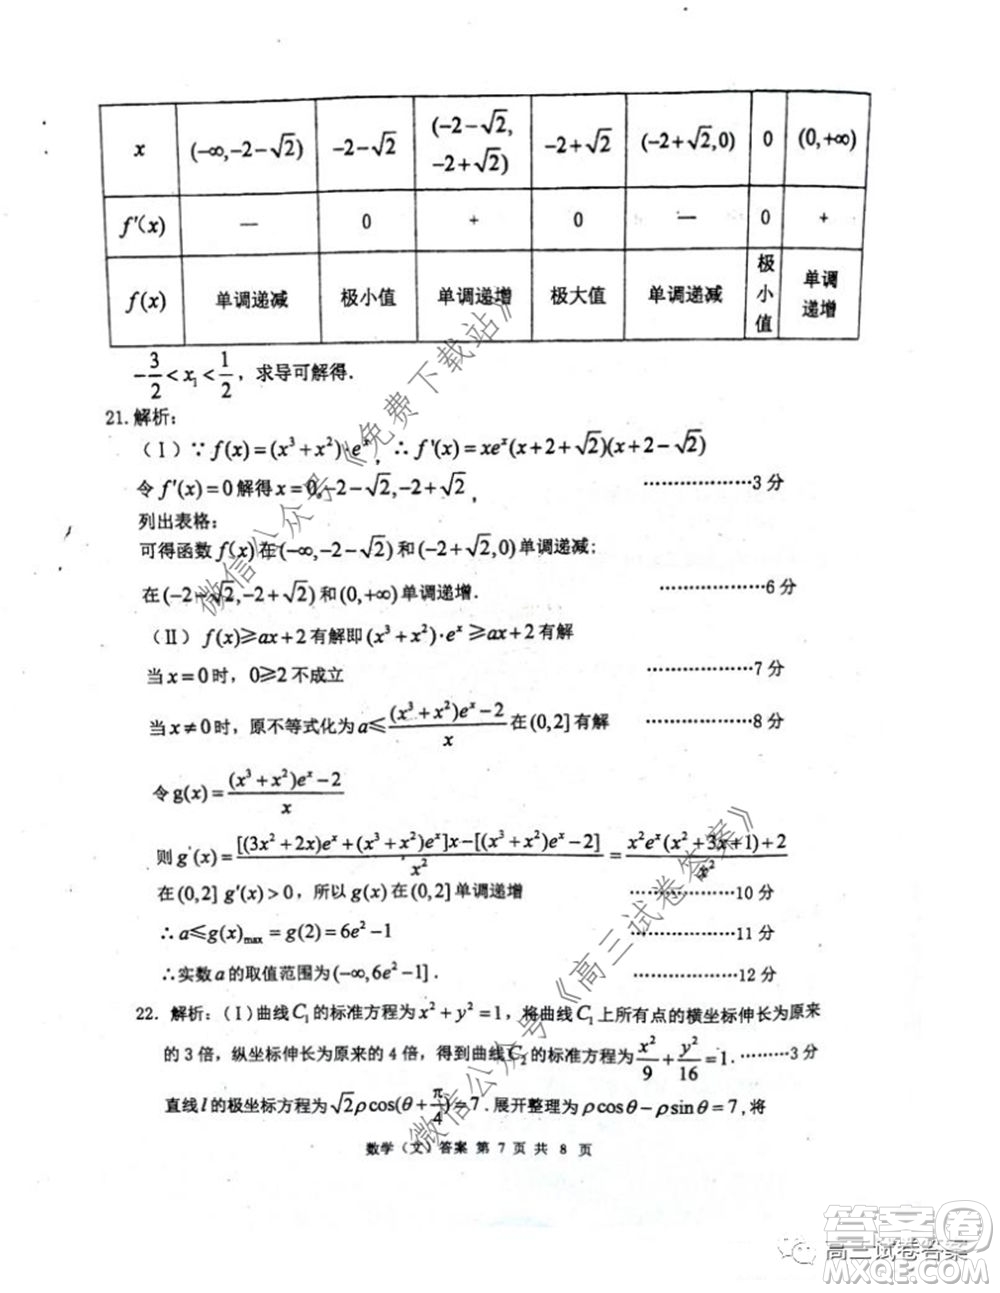 x (-∞,-2-√2) -2-√2 (-2-√2, -2+√2) -2+√2 (-2+√2,0) 0 (0,+∞)
f'(x) — 0 + 0 — 0 +
f(x) 单调递减 极小值 单调递增 极大值 单调递减 极小值 单调递增
-3/2<x₁<1/2，求导可解得.
21.解析：
（Ⅰ）∵ f(x)=(x³+x²)·eˣ，∴ f'(x)=xeˣ(x+2+√2)(x+2-√2)
令 f'(x)=0 解得 x=0,-2-√2,-2+√2， ………………3 分
列出表格：
可得函数 f(x)在(-∞,-2-√2)和(-2+√2,0)单调递减；
在(-2-√2,-2+√2)和(0,+∞)单调递增. ………………6 分
（Ⅱ） f(x)≥ax+2有解即(x³+x²)·eˣ≥ax+2有解
当 x=0时，0≥2不成立 ………………7 分
当 x≠0时，原不等式化为 a≤((x³+x²)eˣ-2)/x 在(0,2]有解 ………………8 分
令 g(x)=((x³+x²)eˣ-2)/x
则 g'(x)=([(3x²+2x)eˣ+(x³+x²)eˣ]x-[(x³+x²)eˣ-2])/x²=(x²eˣ(x²+3x+1)+2)/x²
在(0,2] g'(x)>0，所以 g(x)在(0,2]单调递增 ………………10 分
∴a≤g(x)max=g(2)=6e²-1 ………………11 分
∴实数 a 的取值范围为(-∞,6e²-1]. ………………12 分
22. 解析：（Ⅰ）曲线C₁的标准方程为x²+y²=1，将曲线C₁上所有点的横坐标伸长为原来
的 3 倍，纵坐标伸长为原来的 4 倍，得到曲线C₂的标准方程为x²/9+y²/16=1. ………3 分
直线 l 的极坐标方程为√2ρcos(θ+π/4)=7.展开整理为ρcosθ-ρsinθ=7，将
数学（文）答案 第 7 页 共 8 页
微信公众号《免费下载站》
微信公众号《高三试卷答案》
答案卷
高三试卷答案
MXQE.COM